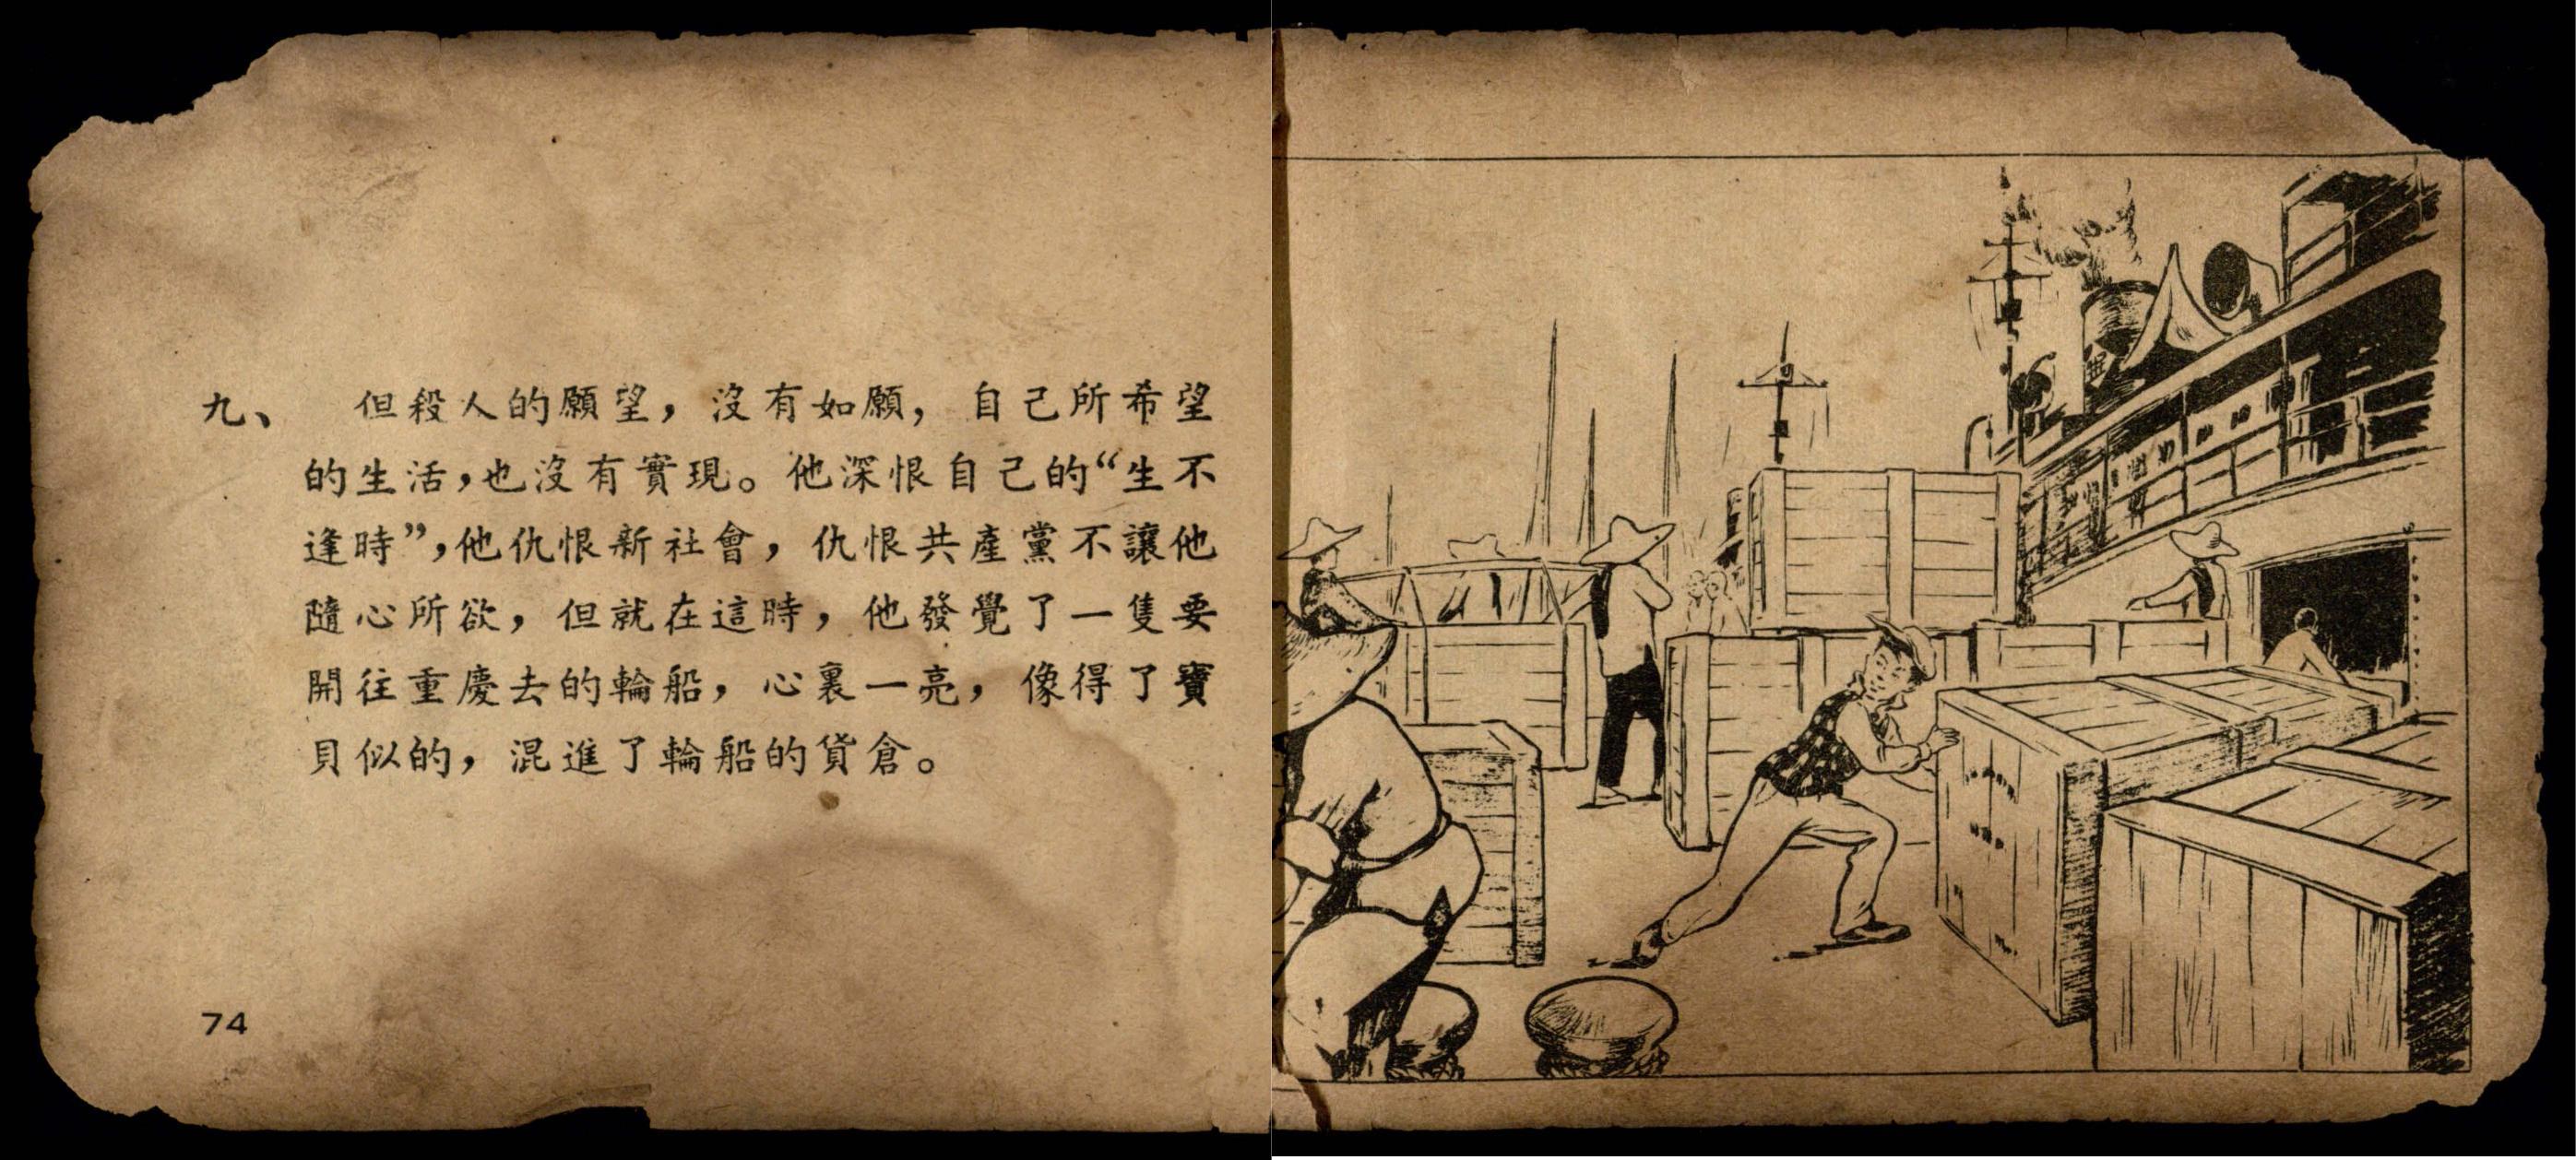 九、 但殺人的願望，沒有如願，自己所希望
的生活，也沒有實現。他深恨自己的“生不
逢時”，他仇恨新社會，仇恨共產黨不讓他
隨心所欲，但就在這時，他發覺了一隻要
開往重慶去的輪船，心裏一亮，像得了寶
貝似的，混進了輪船的貨倉。
74